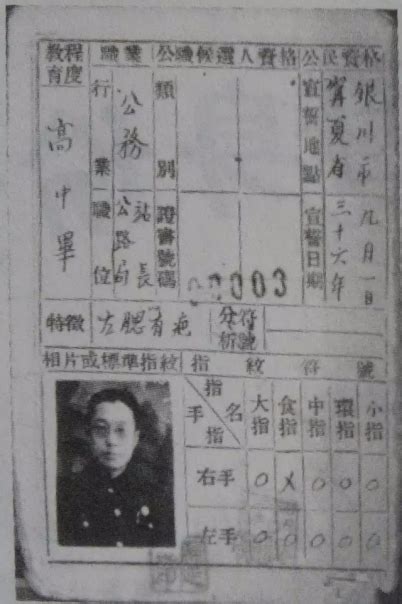 公民資格
宣誓地點
寧夏省銀川市
宣誓日期
三十六年九月一日
公職候選人資格
類別
證書號碼
00003
職業
行業
公務
職位
公路局站長
教育程度
高中畢
特徵
左腮有疤
分析符號
相片或標準指紋
指紋符號
手指 指名 大指 食指 中指 環指 小指
右手 ○ X ○ ○ ○
左手 ○ ○ ○ ○ ○